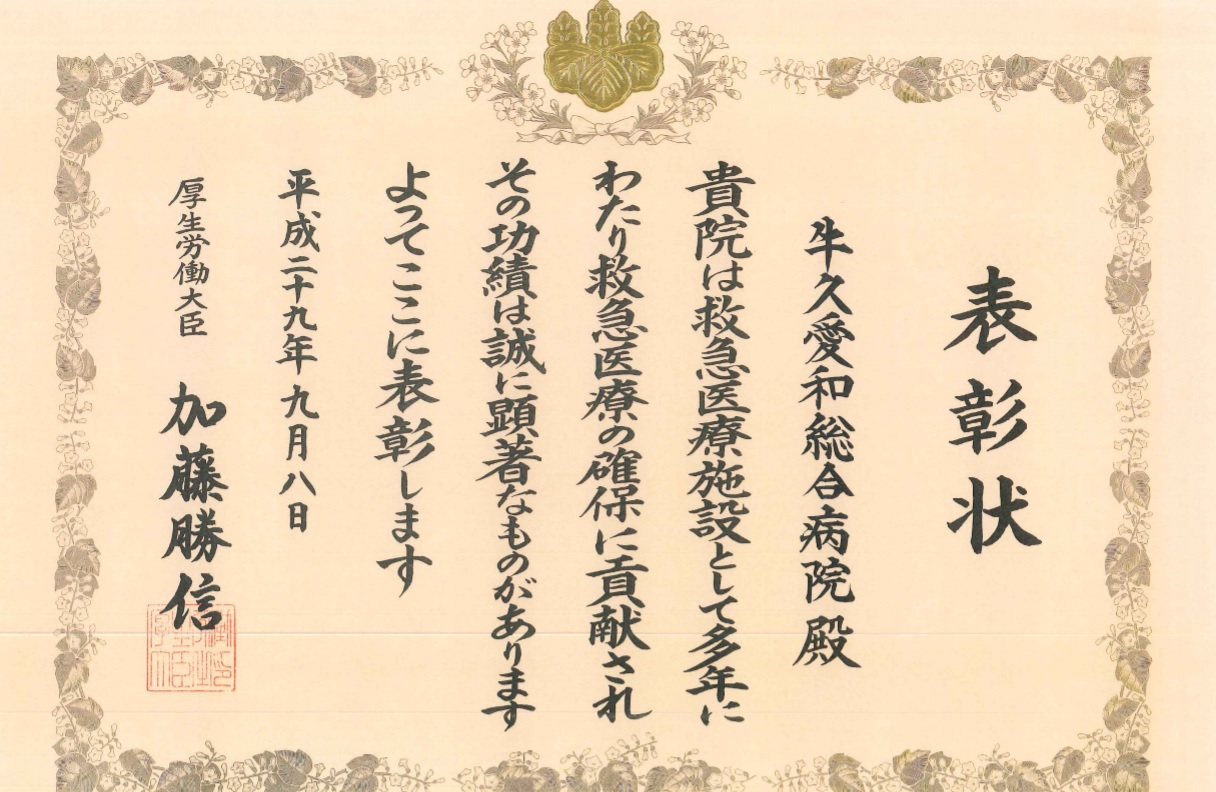 表彰状
牛久愛和総合病院殿
貴院は救急医療施設として多年に
わたり救急医療の確保に貢献され
その功績は誠に顕著なものがあります
よってここに表彰します
平成二十九年九月八日
厚生労働大臣 加藤勝信